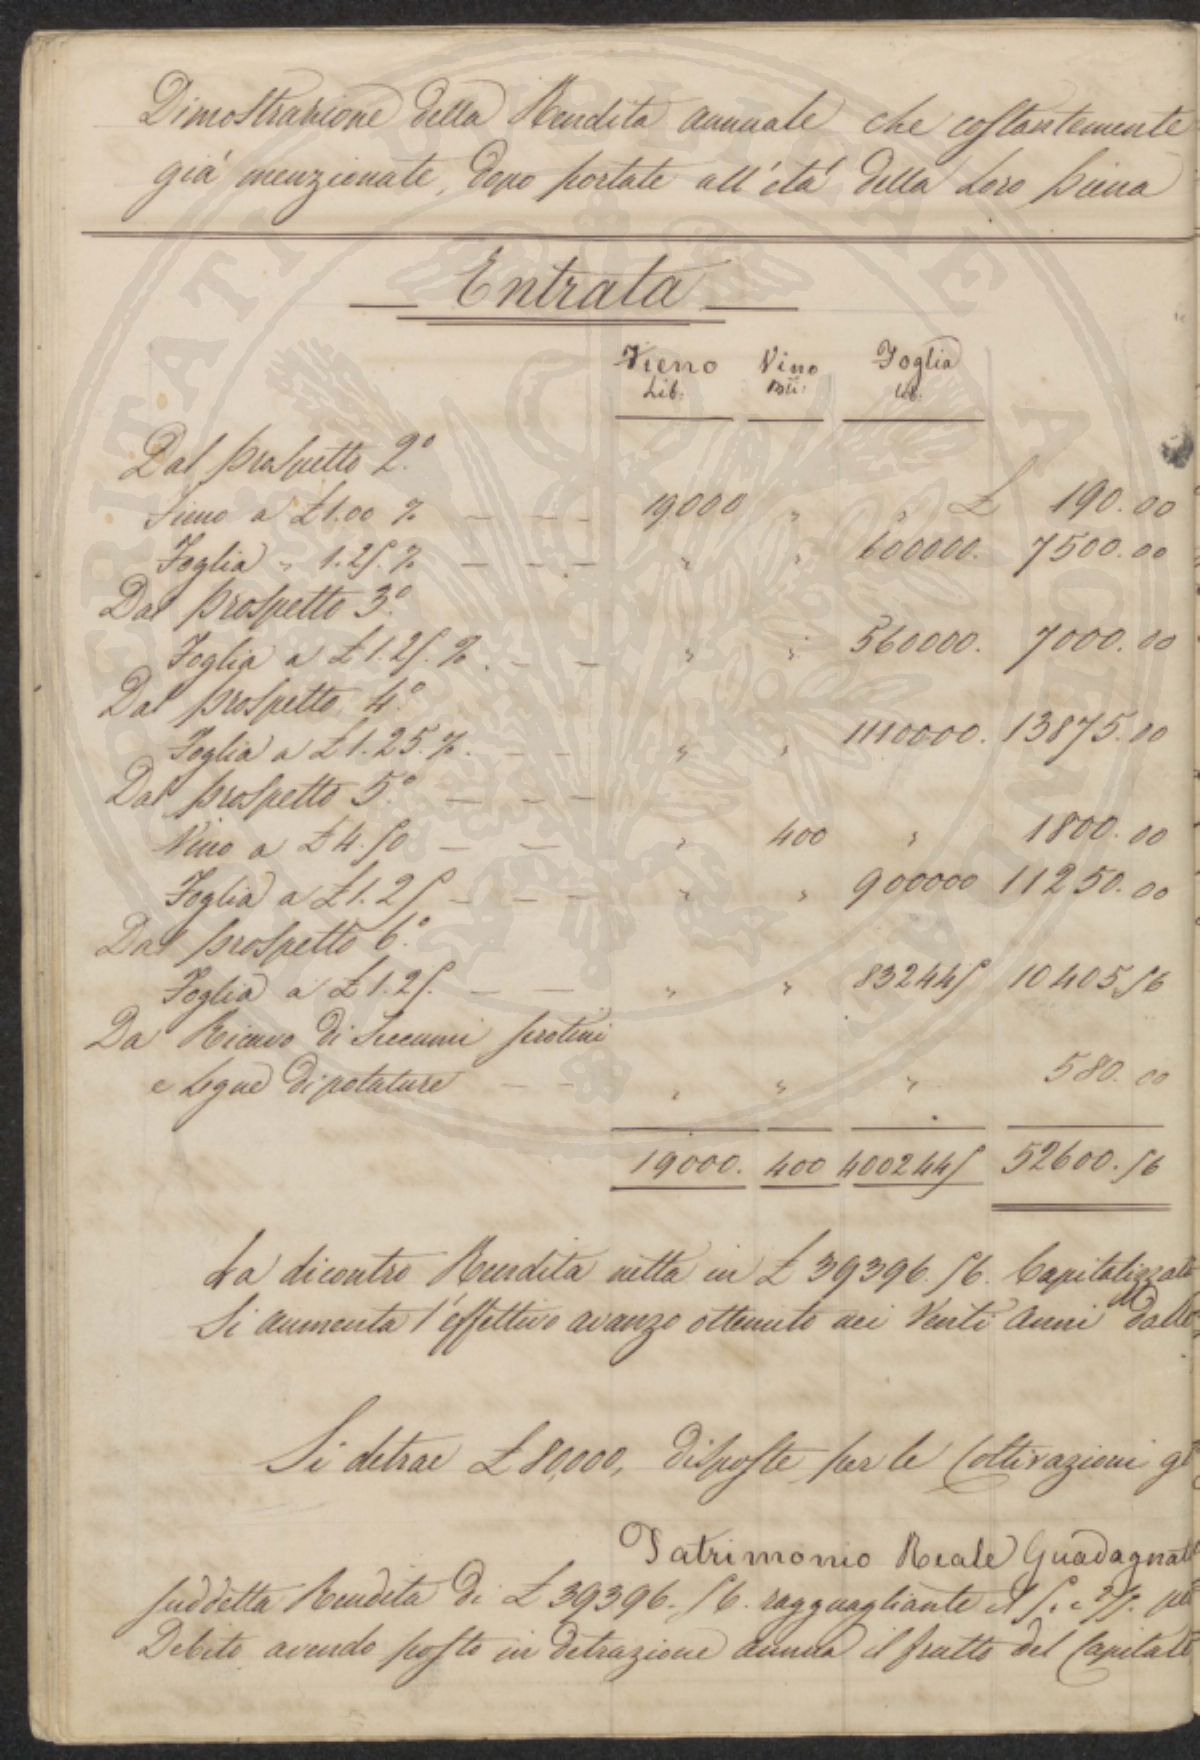 Dimostrazione della Rendita annuale che costantemente
già menzionate, dopo portate all'età della Loro piena
Entrata
Fieno Vino Foglia
Lib: Bti: Lib.
Dal prospetto 2.°
Fieno a £ 1.00 % — — — 19000 " " £ 190.00
Foglia " 1.25. % — — — " " 600000. 7500.00
Dal prospetto 3.°
Foglia a £ 1.25. %. — — " " 560000. 7000.00
Dal prospetto 4.°
Foglia a £ 1.25. %. — — " " 1110000. 13875.00
Dal prospetto 5.° — — —
Vino a £ 4.50 — — " 400 " 1800.00
Foglia a £ 1.25 — — — " " 900000 11250.00
Dal prospetto 6.°
Foglia a £ 1.25. — — " " 832445 10405.56
Da Ricavo di Seccumi
e Legne di potature — — " " " 580.00
19000. 400 4002445 52600.56
La dicontro Rendita netta in £ 39396.56. Capitalizzata
Si aumenta l'effettivo avanzo ottenuto nei Venti Anni dalle
Si detrae £ 80,000, disposte per le Coltivazioni
Patrimonio Reale Guadagnato
suddetta Rendita di £ 39396.56. ragguagliante il
Debito avendo posto in detrazione annua il frutto del Capitale
VERITATI PUBLICAE